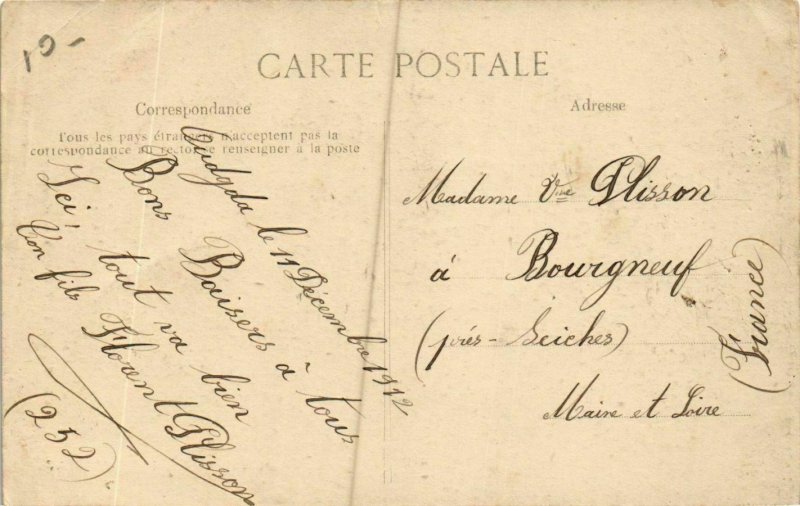 10-
CARTE POSTALE
Correspondance
Tous les pays étrangers n'acceptent pas la
correspondance au recto (se renseigner à la poste
Oudgda le 11 Décembre 1912
Bons Baisers à tous
Ici! tout va bien
Ton fils Florent Plisson
(252)
Adresse
Madame Vve Plisson
à Bourgneuf
(près-Seiches)
Maine et Loire
(France)